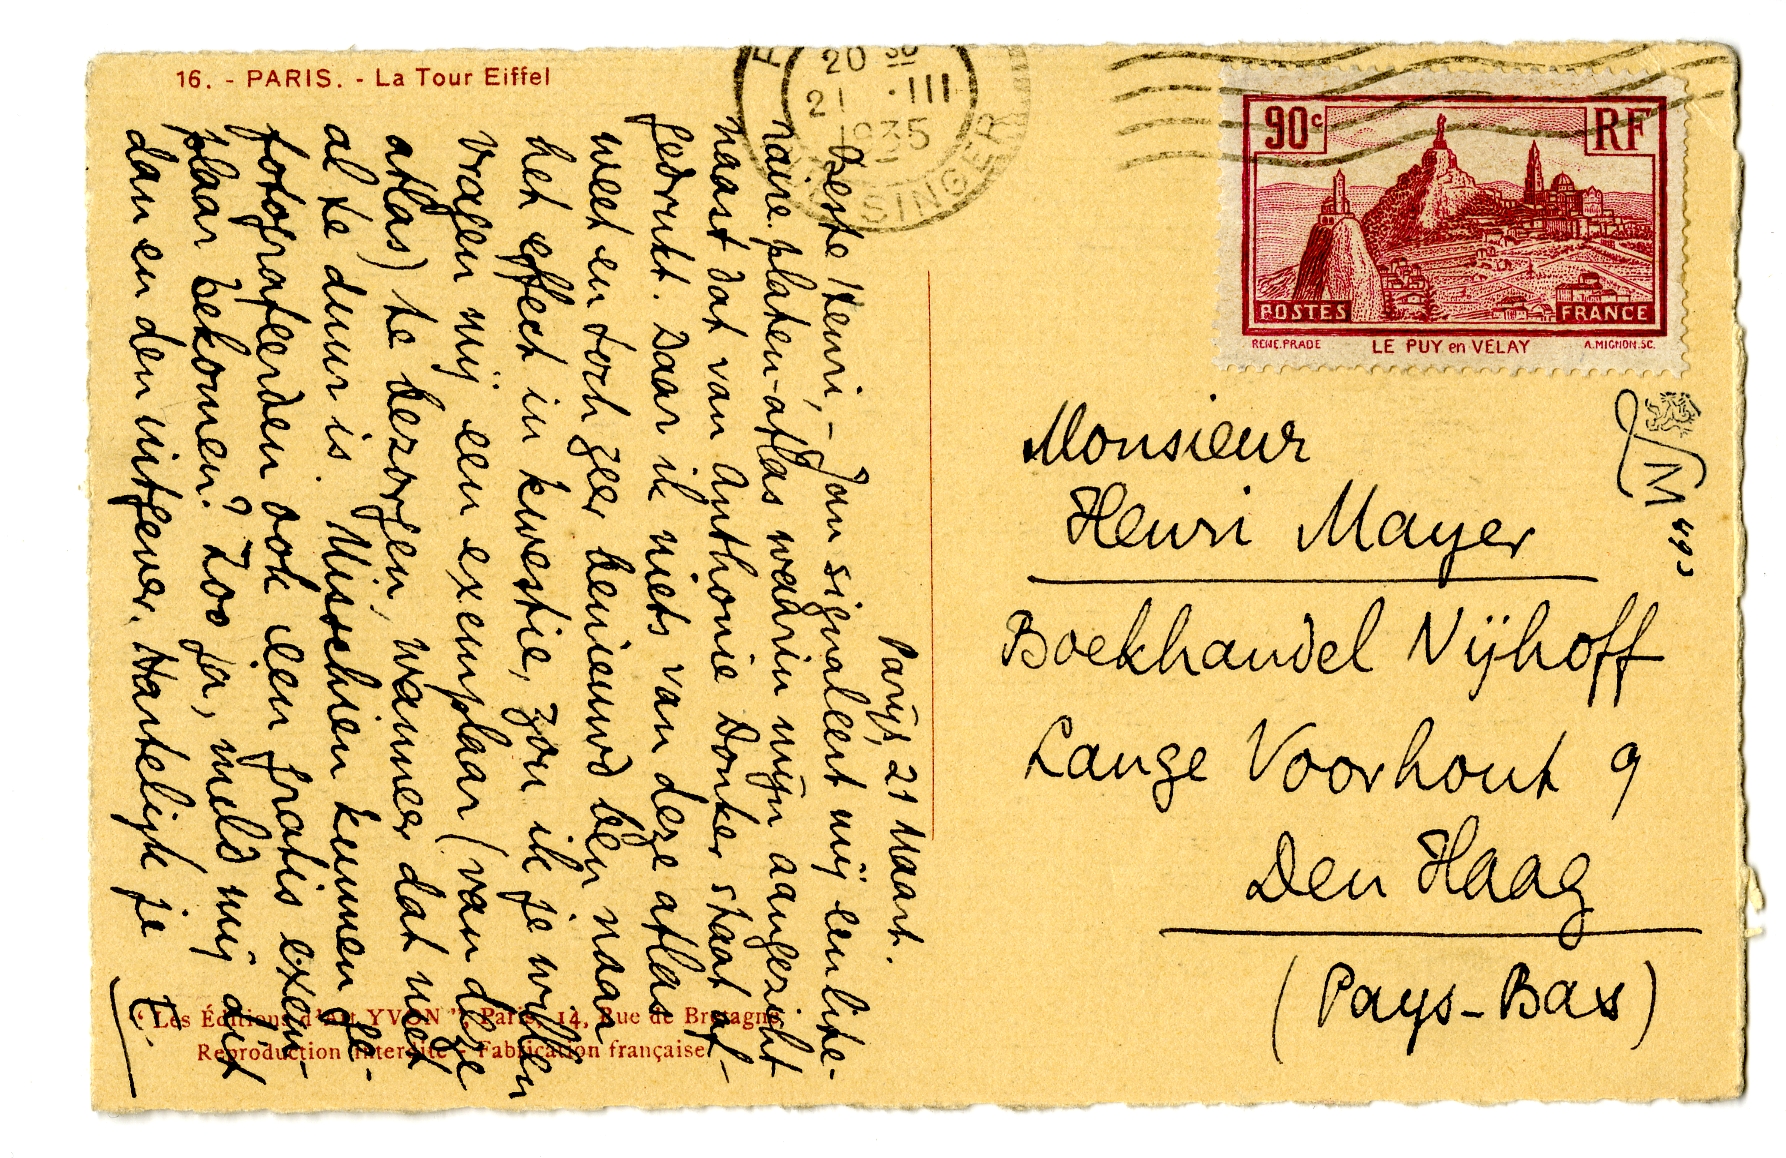 16. - PARIS. - La Tour Eiffel
20 30
21 · III
1935
SINGER
90c
RF
POSTES
FRANCE
RENE.PRADE
LE PUY en VELAY
A.MIGNON.SC.
Parijs, 21 Maart.
Beste Henri, - Jan signaleert mij een lite-
raire platen-atlas waarin mijn aangezicht
naast dat van Anthonie Donker staat af-
gedrukt. Daar ik niets van deze atlas
weet en toch zeer benieuwd ben naar
het effect in kwestie, zou ik je willen
vragen mij een exemplaar (van deze
atlas) te bezorgen, wanneer dat niet
al te duur is. Misschien kunnen ge-
fotografeerden ook een gratis exem-
plaar bekomen? Zoo ja, meld mij dit
dan en den uitgever. Hartelijk je
E.
"Les Éditions d'Art YVON", Paris, 14, Rue de Bretagne
Reproduction interdite - Fabrication française
Monsieur
Henri Mayer
Boekhandel Nijhoff
Lange Voorhout 9
Den Haag
(Pays-Bas)
M